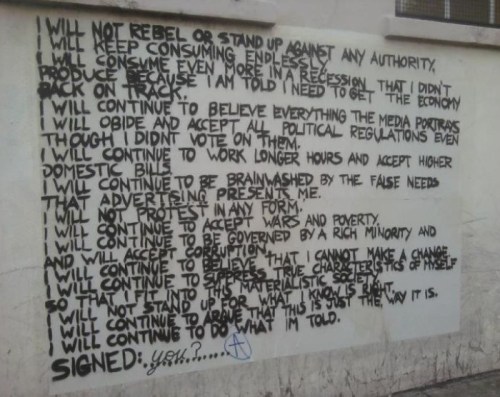 I WILL NOT REBEL OR STAND UP AGAINST ANY AUTHORITY,
I WILL KEEP CONSUMING ENDLESSLY.
I WILL CONSVME EVEN MORE IN A RECESSION THAT I DIDN'T
PRODUCE BECAUSE I AM TOLD I NEED TO GET THE ECONOMY
BACK ON TRACK.
I WILL CONTINUE TO BELIEVE EVERYTHING THE MEDIA PORTRAYS
I WILL OBIDE AND ACCEPT ALL POLITICAL REGULATIONS EVEN
THOUGH I DIDNT VOTE ON THEM.
I WILL CONTINUE TO WORK LONGER HOURS AND ACCEPT HIGHER
DOMESTIC BILLS.
I WILL CONTINUE TO BE BRAINWASHED BY THE FALSE NEEDS
THAT ADVERTISING PRESENTS ME.
I WILL NOT PROTEST IN ANY FORM.
I WILL CONTINUE TO ACCEPT WARS AND POVERTY.
I WILL CONTINUE TO BE GOVERNED BY A RICH MINORITY AND
AND WILL ACCEPT CORRUPTION.
I WILL CONTINUE TO BELIEVE THAT I CANNOT MAKE A CHANGE
I WILL CONTINUE TO SUPPRESS TRUE CHARACTERISTICS OF MYSELF
SO THAT I FIT INTO THIS MATERIALISTIC SOCIETY.
I WILL NOT STAND UP FOR WHAT I KNOW IS RIGHT.
I WILL CONTINUE TO ARGUE THAT THIS IS JUST THE WAY IT IS.
I WILL CONTINUE TO DO WHAT IM TOLD.
SIGNED: you?............ A